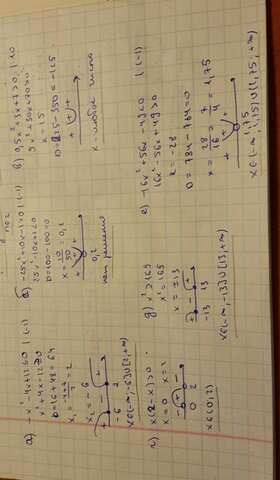 а) -x²-4x+12≤0 | (-1)
x²+4x-12≥0
D=16+48=64
x₂=-6
-6 2
б) -25x²+10x-1>0 | (-1)
25x²-10x+1<0
D=100-100=0
0,2
нет решения
в) 0,5x²+3x+7>0 | 10
5x²+30x+70>0
k=15
D=225-350=-125
x - любое число
г) x(2-x)>0
x=0 x=2
0 2
x∈(0;2)
д) x²≥169
x=±13
-13 13
x∈(-∞,-13]U[13,+∞)
е) -16x²+56x-49<0 | (-1)
16x²-56x+49>0
k=-28
D=784-784=0
x=28/16=7/4=1,75
1,75
x∈(-∞,1,75)U(1,75,+∞)